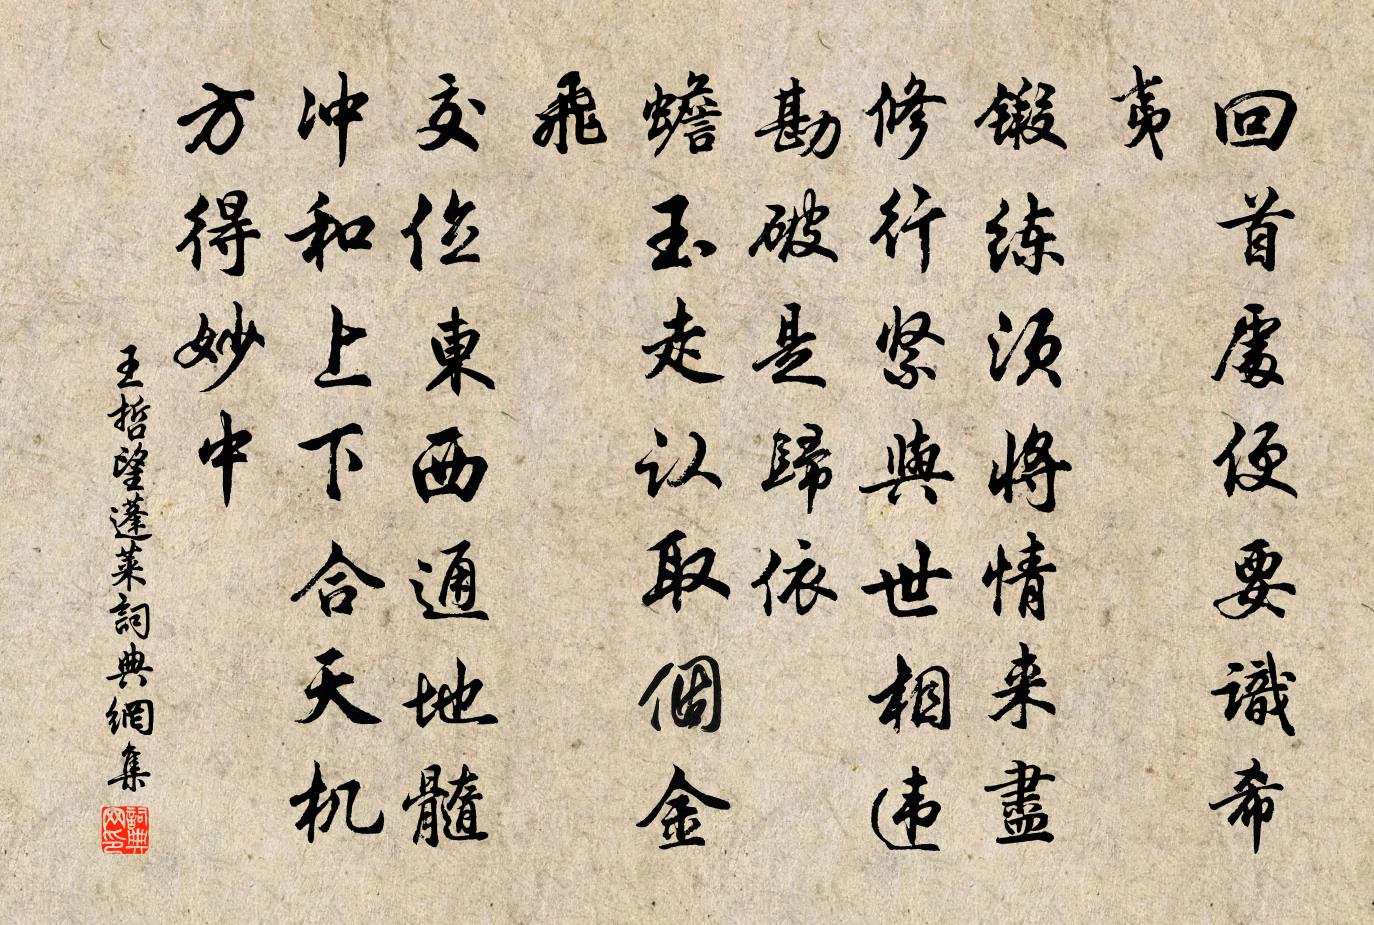 回首處便要識希
夷
鍛练须將情来盡
修行紧與世相违
勘破是歸依
蟾玉走认取個金
飛
交位東西通地髓
冲和上下合天机
方得妙中
王哲望蓬莱詞典網集
詞典